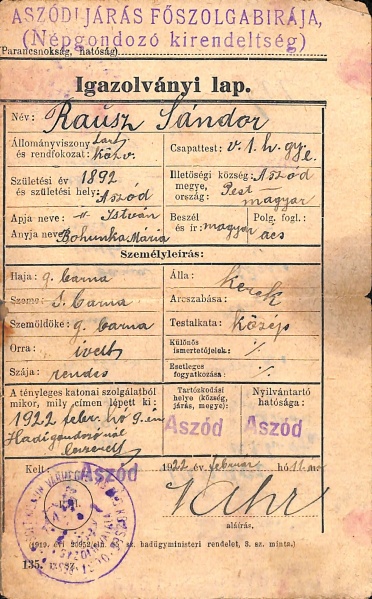 ASZÓDI JÁRÁS FŐSZOLGABIRÁJA,
(Népgondozó kirendeltség)
(Parancsnokság, hatóság)
Igazolványi lap.
Név: Rausz Sándor
Állományviszony tart.
és rendfokozat: közv.
Csapattest: v. 1. h. gy. e.
Születési év 1892
és születési hely: Aszód
Illetőségi község: Aszód
megye, Pest
ország: magyar
Apja neve: " István
Anyja neve: Bohunka Mária
Beszél
és ír: magyar
Polg. fogl.:
ács
Személyleírás:
Haja: g. barna
Szeme: s. barna
Szemöldöke: g. barna
Orra: ívelt
Szája: rendes
Álla: kerek
Arcszabása:
Testalkata: közép
Különös
ismertetőjelek: %
Esetleges
fogyatkozása: %
A tényleges katonai szolgálatból
mikor, mily címen lépett ki:
1922 febr. hó 9.-én
Hadigondozónál
Tartózkodási
helye (község,
járás, megye):
Aszód
Nyilvántartó
hatósága:
Aszód
Kelt: Aszód 1922 év február hó
aláírás,
hadügyministeri rendelet, 3. sz. minta.)
135.